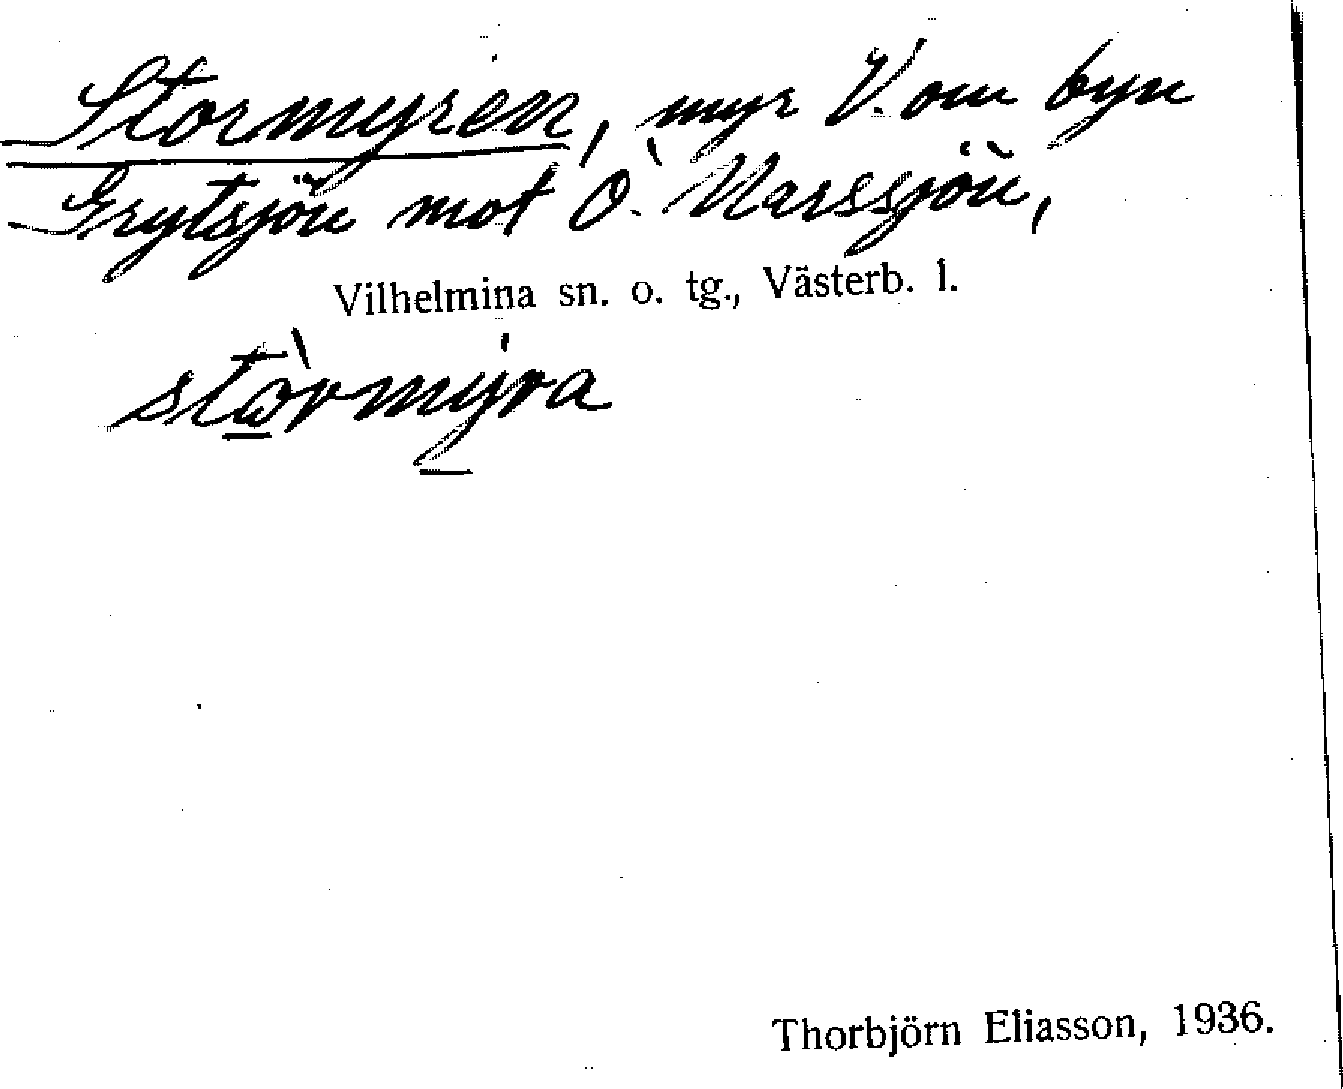 Stormyren, myr V. om byn
Grytsjön mot Ö. Marssjön,
Vilhelmina sn. o. tg., Västerb. l.
stòrmýra
Thorbjörn Eliasson, 1936.